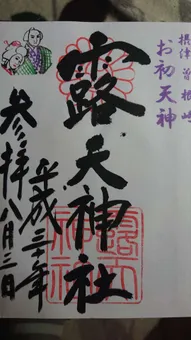 摂津 曽根崎
お初天神
露天神社
平成三十年
八月三日
参拝